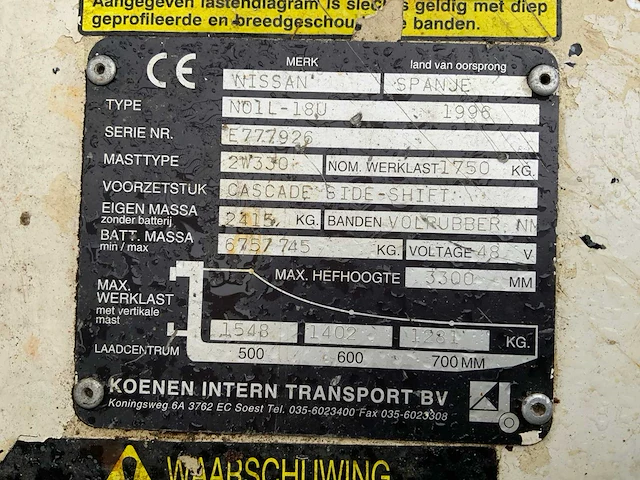 Aangegeven lastendiagram is slechts geldig met diep
geprofileerde en breedgeschou banden.
CE
MERK land van oorsprong
NISSAN SPANJE
TYPE NO1L-18U 1996
SERIE NR. E777926
MASTTYPE 2W330 NOM. WERKLAST 1750 KG.
VOORZETSTUK CASCADE SIDE-SHIFT
EIGEN MASSA 2415 KG. BANDEN VOLRUBBER, NM
zonder batterij
BATT. MASSA 675/745 KG. VOLTAGE 48 V
min / max
MAX. HEFHOOGTE 3300 MM
MAX.
WERKLAST
met vertikale
mast
1548 1402 1281 KG.
LAADCENTRUM 500 600 700 MM
KOENEN INTERN TRANSPORT BV
Koningsweg 6A 3762 EC Soest Tel. 035-6023400 Fax 035-6023308
WAARSCHUWING